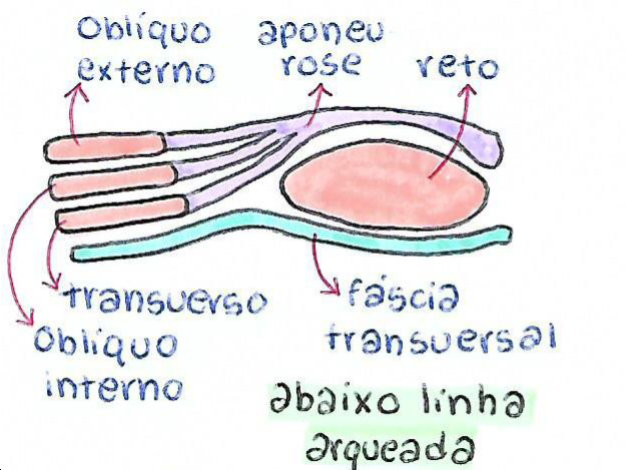 Oblíquo
externo
aponeu
rose
reto
transverso
Oblíquo
interno
fáscia
transversal
abaixo linha
arqueada